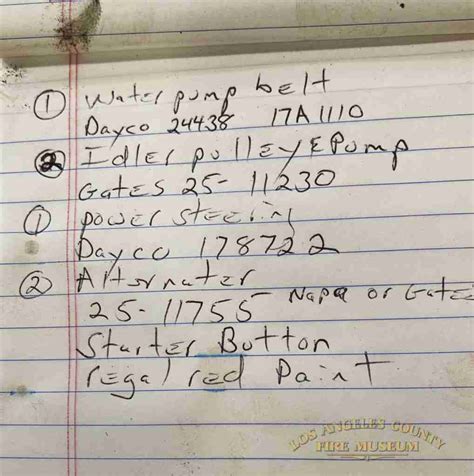 ① Water pump belt
Dayco 24438 17A1110
② Idler pulley & Pump
Gates 25-11230
① power steering
Dayco 178722
② Alternater
25-11755 Napa or Gates
Starter Button
regal red Paint
LOS ANGELES COUNTY
FIRE MUSEUM